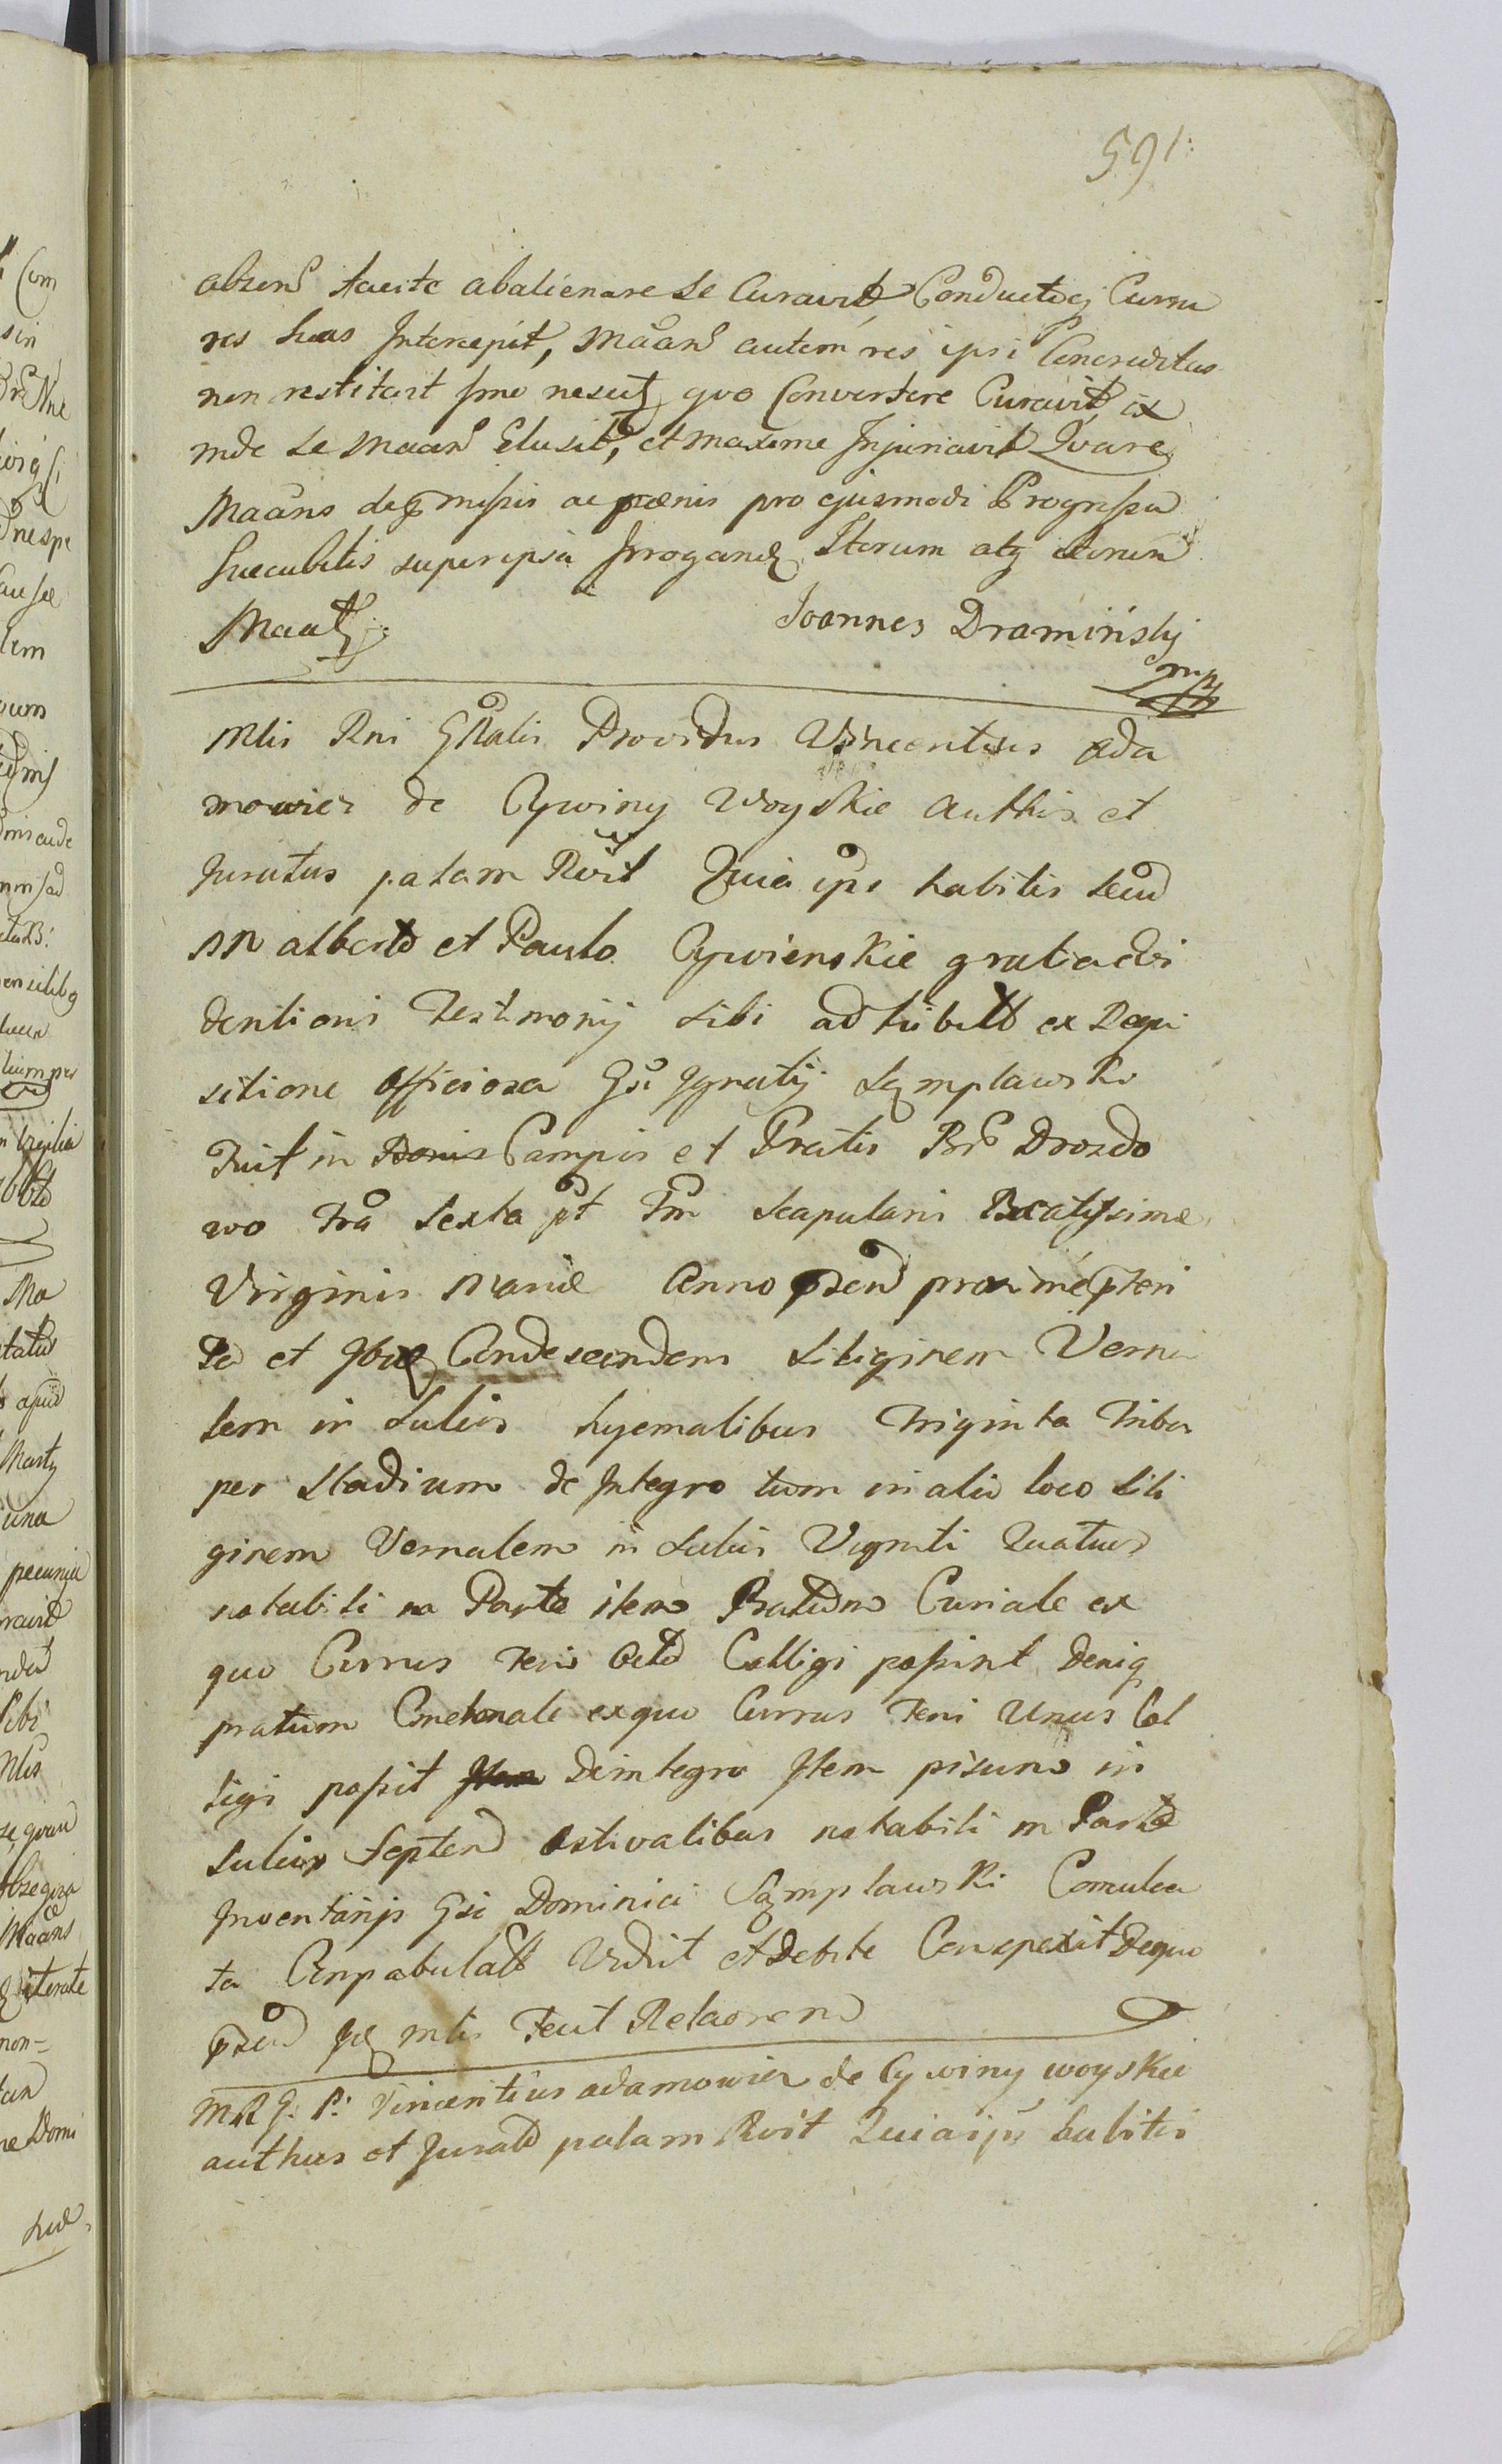 591:
absens tacite abalienare se Curavit, Conductoq Curru
res suas Intercepit, Maans autem res ipsi Concreditas
non restituit imo nescitq quo Convertere Curavit, ex
inde se Maans Elusit, et maxime Injuriavit Qvare
Maans deq missis ac pænis pro ejusmodi Progressu
Succubitis super ipsa Irrogand Iterum atq iterum
Maatq Joannes Dramiński
mp
Mlis Rni Gñalis Providus Vincentius Ada
mowicz de Cywiny Woyskie Authus et
Juratus palam Rvit Quia ips habitis secu
NN Alberto et Paulo Cywienskie gratia evi
dentioris Testimonij sibi adhibitt ex Requi
sitione Officiosa Gsi Ignatij Sąmplawski
Fuit in Campis et Pratis Br Drozdo
wo Fra Sexta pt Fm Scapularis Beatissimæ
Virginis Mariæ Anno psen proxime pteri
ta et Ibiq Condescendens Siliginem Verna
lem in Sulcis hyemalibus Triginta Tribus
per Stadium de Integro tum in alio loco Sili
ginem Vernalem in Sulcis Viginti Quatuor
notabili in Parte item Pratum Curiale ex
quo Currus Feni Octo Colligi possint Deniq
pratum Cmethonale ex quo Currus Feni Unus Col
ligi possit Item Deintegro Item pisum in
Sulcis Septem Æstivalibus notabili in Parte
Inventarijs Gsi Dominici Sąmplawski Conculca
ta Conpabulatt Vidit et Debite Conspexit Dequo
psen Iq mlis Fecit Relaonem
M R G. P: Vincentius Adamowicz de Cywiny woyskie
authus et Jurato palam Rvit Quia ips habitis